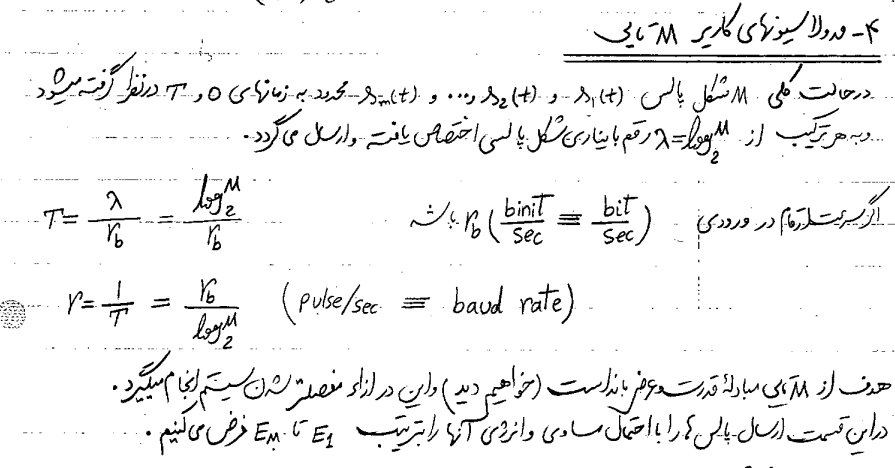 ۴- مدولاسیونهای کاریر M تایی
درحالت کلی M شکل پالس s₁(t) و s₂(t) و... و sₘ(t) محدود به زمانهای 0 و T درنظر گرفته میشود
وبه هر ترکیب از λ=log₂M رقم باینری شکل پالسی اختصاص یافته وارسال می گردد.
اگر سرعت ارقام در ورودی r_b (binit/sec ≡ bit/sec) باشد T = λ/r_b = log₂M/r_b
r = 1/T = r_b/log₂M (pulse/sec ≡ baud rate)
هدف از M تایی مبادلهٔ قدرت وعرض بانداست (خواهیم دید) واین در ازاء مفصلتر شدن سیستم انجام میگیرد.
دراین قسمت ارسال پالس ها را با احتمال مساوی وانرژی آنها رابترتیب E₁ تا E_M فرض می کنیم.